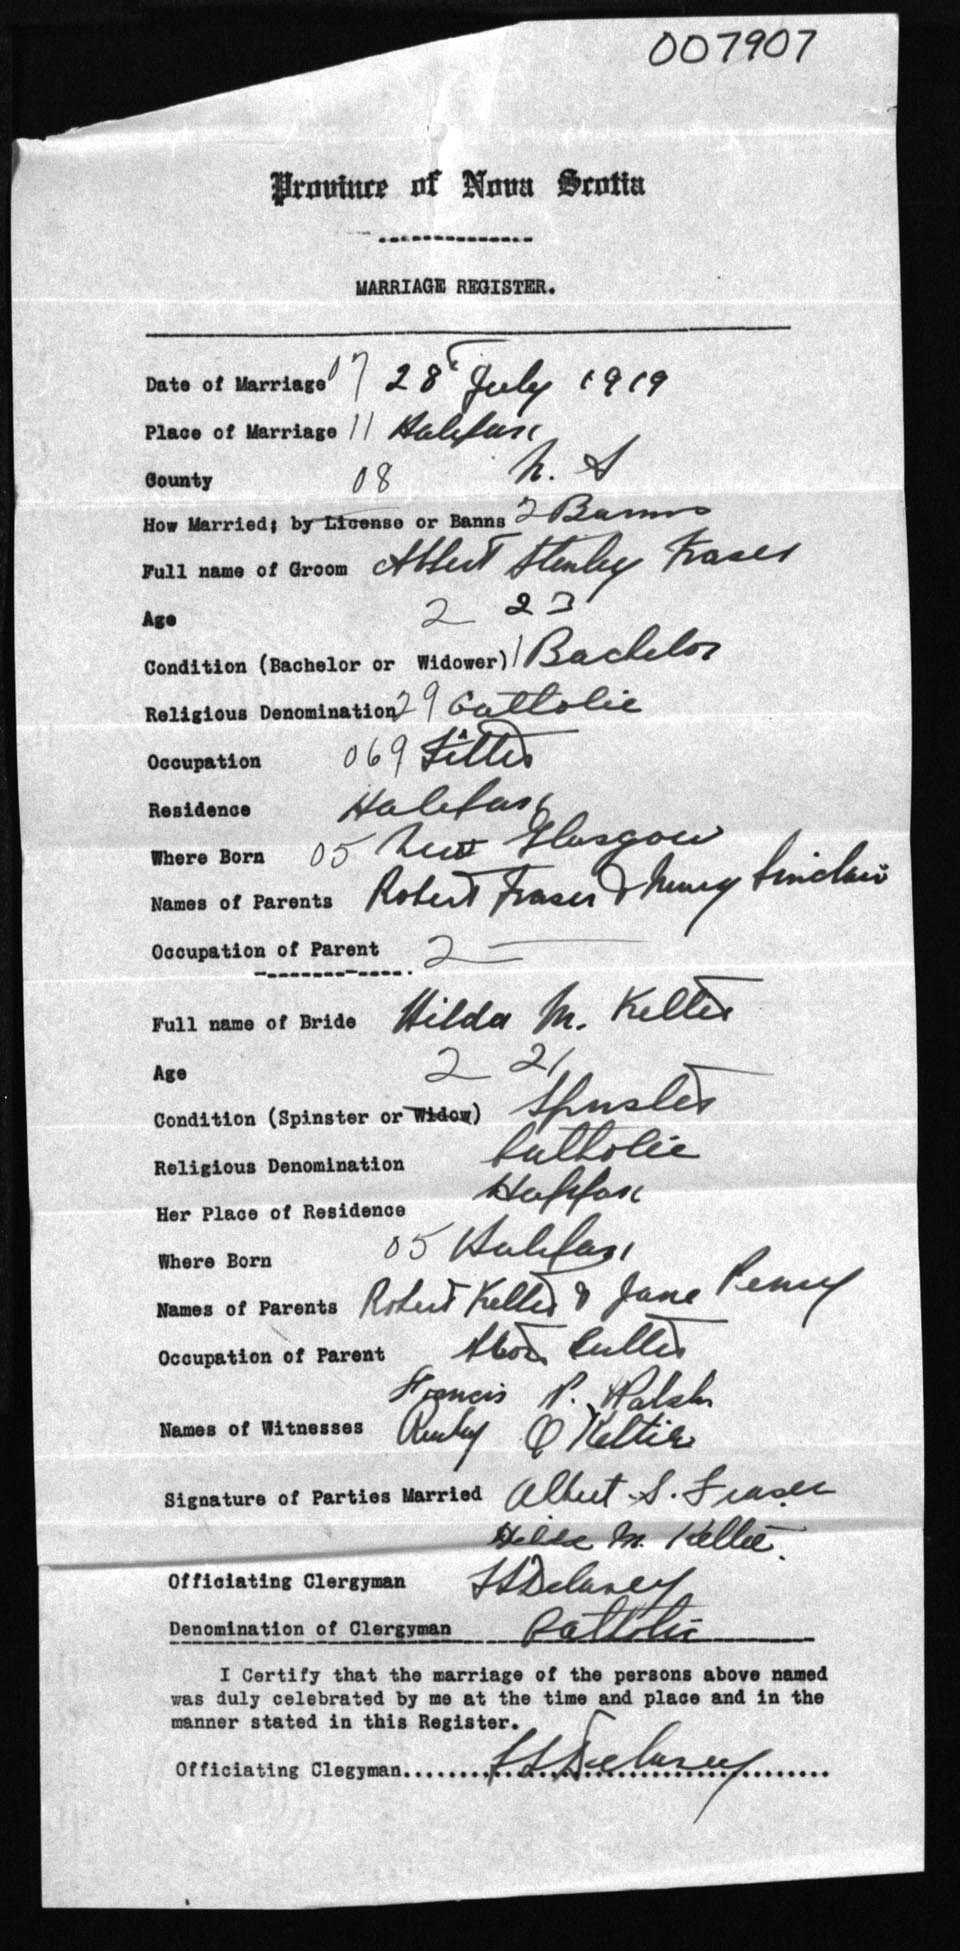 007907
Province of Nova Scotia
MARRIAGE REGISTER.
Date of Marriage 07 28 July 1919
Place of Marriage 11 Halifax
County 08 N. S
How Married; by License or Banns 2 Banns
Full name of Groom Albert Stanley Fraser
Age 2 23
Condition (Bachelor or Widower) 1 Bachelor
Religious Denomination 29 Catholic
Occupation 069 Fitter
Residence Halifax
Where Born 05 New Glasgow
Names of Parents Robert Fraser & Sinclair
Occupation of Parent 2 —
Full name of Bride Hilda M. Keltie
Age 2 21
Condition (Spinster or Widow) Spinster
Religious Denomination Catholic
Her Place of Residence Halifax
Where Born 05 Halifax
Names of Parents Robert Keltie & Jane Penny
Occupation of Parent Cutter
Francis P. Walsh
Names of Witnesses Keltie
Signature of Parties Married Albert S. Fraser
Hilda M. Keltie.
Officiating Clergyman Delaney
Denomination of Clergyman Catholic
I Certify that the marriage of the persons above named
was duly celebrated by me at the time and place and in the
manner stated in this Register.
Officiating Clegyman.......Delaney.......